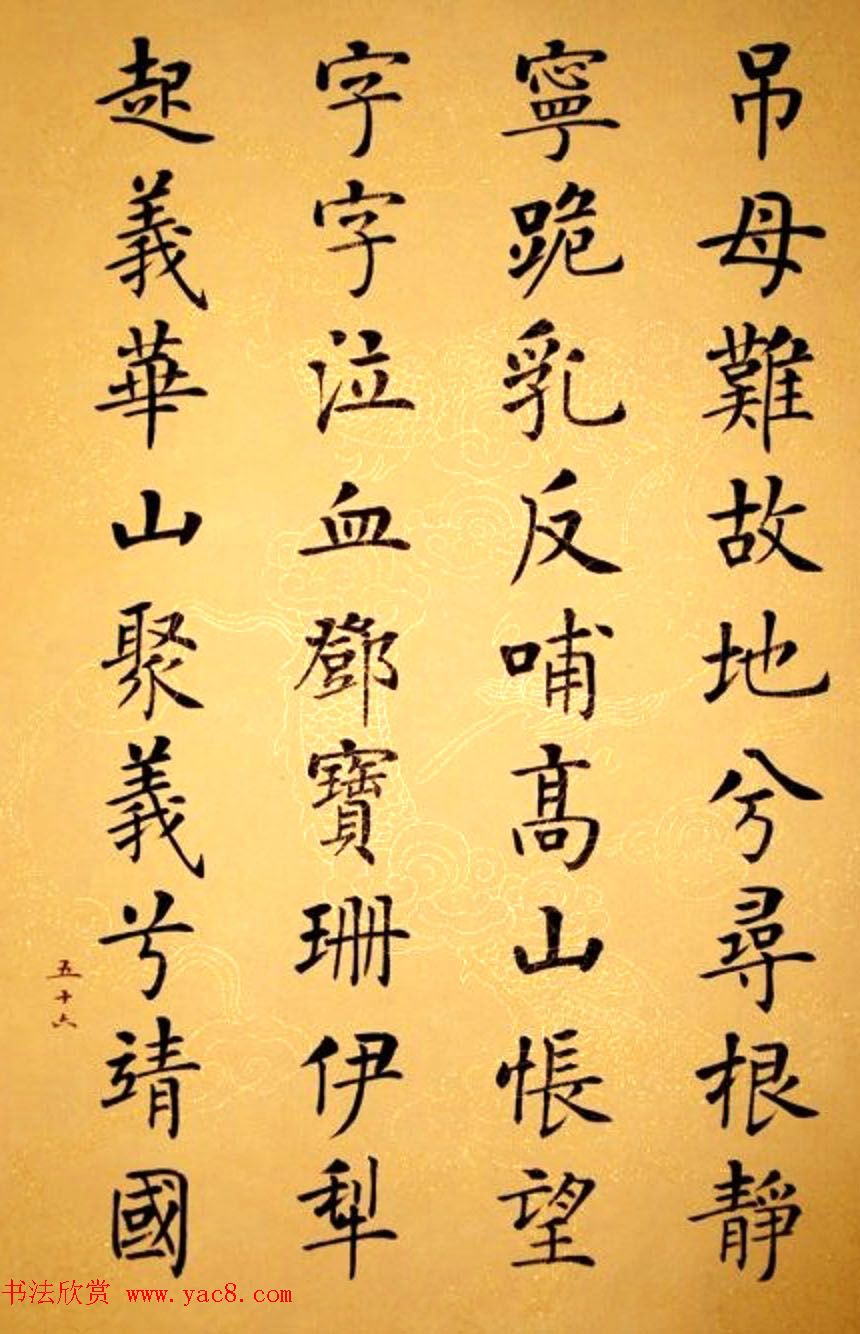 吊母難故地兮尋根靜
寧跪乳反哺高山悵望
字字泣血鄧寶珊伊犁
起義華山聚義兮靖國
五十六
书法欣赏 www.yac8.com